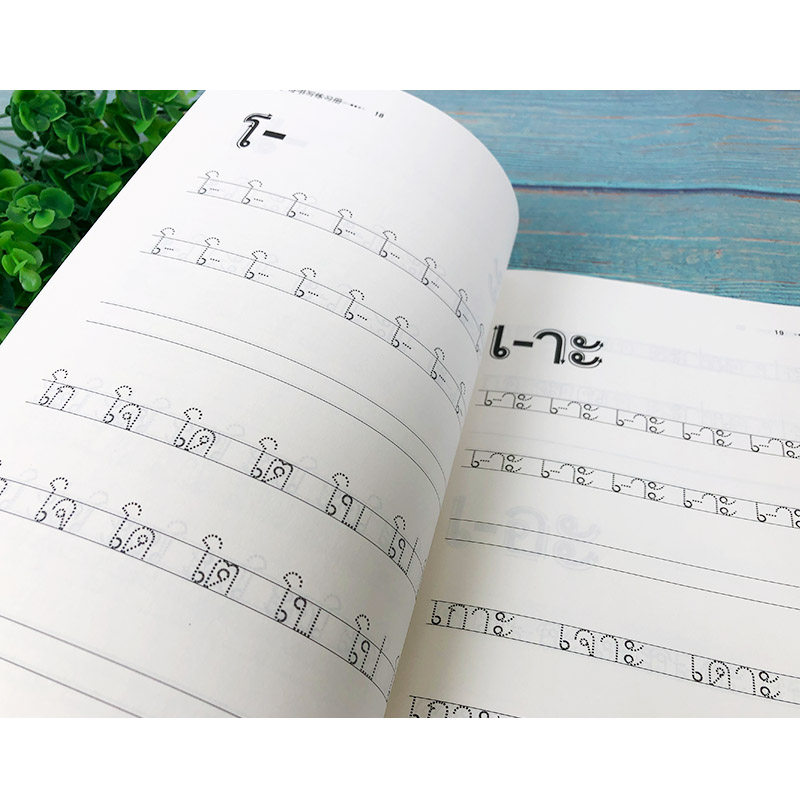 书写练习册 18
โ-
โ- โ- โ- โ- โ- โ- โ-
โ- โ- โ- โ- โ- โ- โ-
โก โจ โด โต โบ โป
โจ โด โต โบ โป
19
เ-าะ
เ-าะ เ-าะ เ-าะ เ-าะ เ-าะ
เ-าะ เ-าะ เ-าะ เ-าะ เ-าะ
เกาะ เจาะ เดาะ
เกาะ